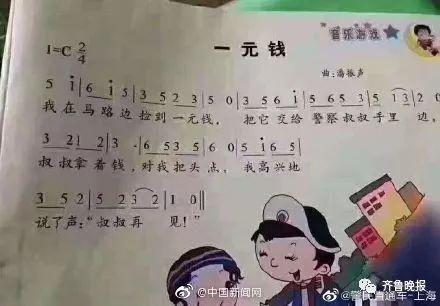 音乐游戏
1=C 2/4
一元钱
曲:潘振声
5 i | 6 i 5 | 3 5 2 3 | 5 0 | 3 5 6 i | 5 6 5 3 | 5 1 3 | 2 0
我在马路边捡到一元钱, 把它交给警察叔叔手里边,
3 2 1 2 | 3 · | 6 6 5 3 5 | 6 0 | 5 i 6 5 |
叔叔拿着钱,对我把头点, 我高兴地
3 5 2 | 5 2 3 2 | 1 0 ||
说了声:“叔叔再见!”
@中国新闻网
@警民直通车-上海
齐鲁晚报